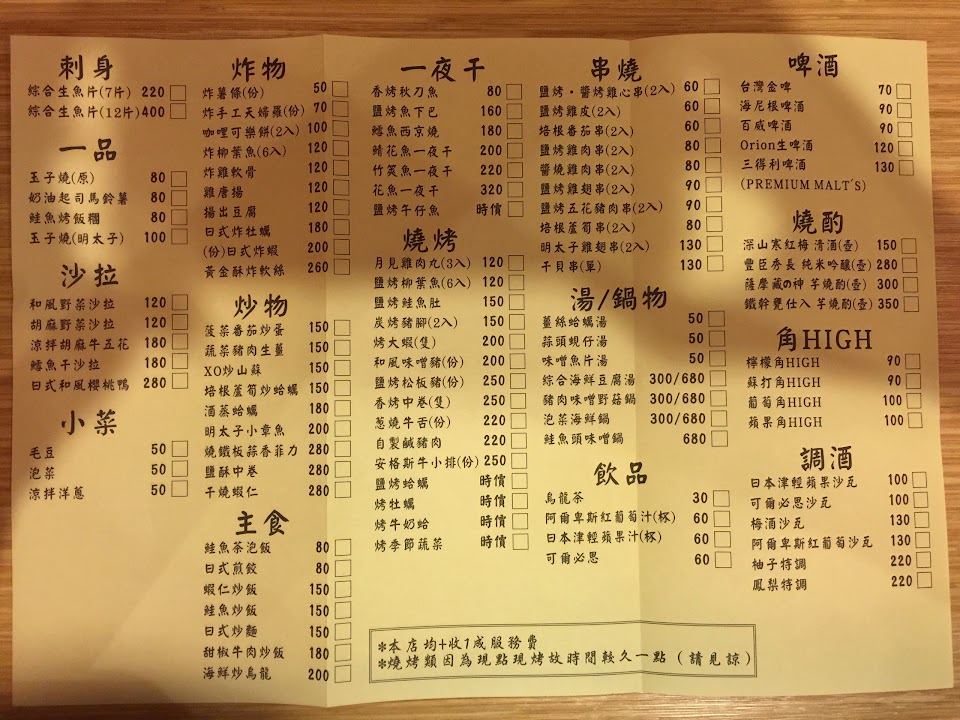 刺身
綜合生魚片(7片) 220
綜合生魚片(12片) 400
一品
玉子燒(原) 80
奶油起司馬鈴薯 80
鮭魚烤飯糰 80
玉子燒(明太子) 100
沙拉
和風野菜沙拉 120
胡麻野菜沙拉 120
涼拌胡麻牛五花 180
鱈魚干沙拉 180
日式和風櫻桃鴨 280
小菜
毛豆 50
泡菜 50
涼拌洋蔥 50
炸物
炸薯條(份) 50
炸手工天婦羅(份) 70
咖哩可樂餅(2入) 100
炸柳葉魚(6入) 120
炸雞軟骨 120
雞唐揚 120
揚出豆腐 120
日式炸牡蠣 180
(份)日式炸蝦 200
黃金酥炸軟絲 260
炒物
菠菜番茄炒蛋 150
蔬菜豬肉生薑 150
XO炒山蘇 150
培根蘆筍炒蛤蠣 150
酒蒸蛤蠣 180
明太子小章魚 200
燒鐵板蒜香菲力 280
鹽酥中卷 280
干燒蝦仁 280
主食
鮭魚茶泡飯 80
日式煎餃 80
蝦仁炒飯 150
鮭魚炒飯 150
日式炒麵 150
甜椒牛肉炒飯 180
海鮮炒烏龍 200
一夜干
香烤秋刀魚 80
鹽烤魚下巴 160
鱈魚西京燒 180
鯖花魚一夜干 200
竹筴魚一夜干 220
花魚一夜干 320
鹽烤午仔魚 時價
燒烤
月見雞肉丸(3入) 120
鹽烤柳葉魚(6入) 120
鹽烤鮭魚肚 150
炭烤豬腳(2入) 150
烤大蝦(隻) 200
和風味噌豬(份) 200
鹽烤松板豬(份) 250
香烤中卷(隻) 250
蔥燒牛舌(份) 220
自製鹹豬肉 220
安格斯牛小排(份) 250
鹽烤蛤蠣 時價
烤牡蠣 時價
烤牛奶蛤 時價
烤季節蔬菜 時價
串燒
鹽烤・醬烤雞心串(2入) 60
鹽烤雞皮(2入) 60
培根番茄串(2入) 60
鹽烤雞肉串(2入) 80
醬燒雞肉串(2入) 80
鹽烤雞翅串(2入) 90
鹽烤五花豬肉串(2入) 90
培根蘆筍串(2入) 80
明太子雞翅串(2入) 130
干貝串(單) 130
湯/鍋物
薑絲蛤蠣湯 50
蒜頭蜆仔湯 50
味噌魚片湯 50
綜合海鮮豆腐湯 300/680
豬肉味噌野菇鍋 300/680
泡菜海鮮鍋 300/680
鮭魚頭味噌鍋 680
飲品
烏龍茶 30
阿爾卑斯紅葡萄汁(杯) 60
日本津輕蘋果汁(杯) 60
可爾必思 60
啤酒
台灣金啤 70
海尼根啤酒 90
百威啤酒 90
Orion生啤酒 120
三得利啤酒 130
(PREMIUM MALT´S)
燒酌
深山寒紅梅 清酒(壺) 150
豐臣秀長 純米吟釀(壺) 280
薩摩藏の神 芋燒酌(壺) 300
鐵幹甕仕入 芋燒酌(壺) 350
角HIGH
檸檬角HIGH 90
蘇打角HIGH 90
葡萄角HIGH 100
蘋果角HIGH 100
調酒
日本津輕蘋果沙瓦 100
可爾必思沙瓦 100
梅酒沙瓦 130
阿爾卑斯紅葡萄沙瓦 130
柚子特調 220
鳳梨特調 220
*本店均+收1成服務費
*燒烤類因為現點現烤故時間較久一點(請見諒)